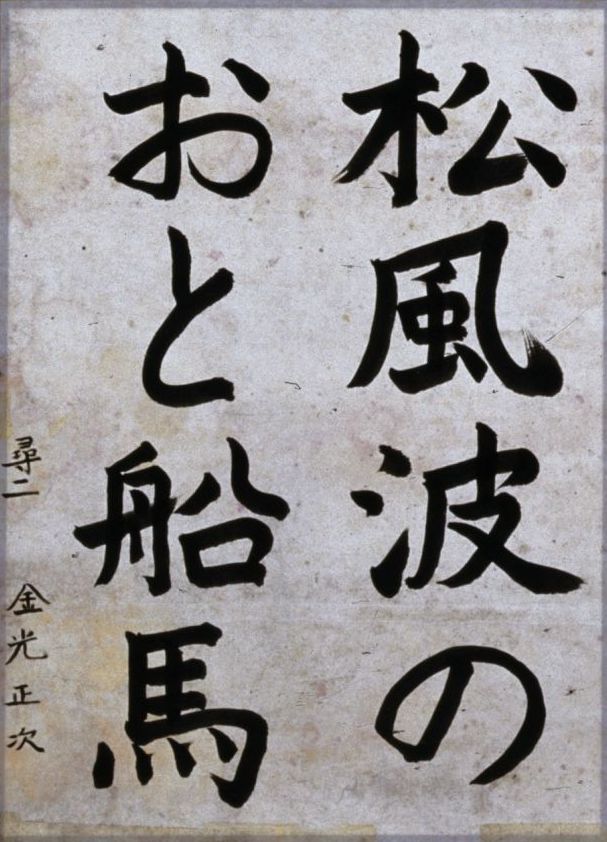 松風波の
おと船馬
尋二 金光正次